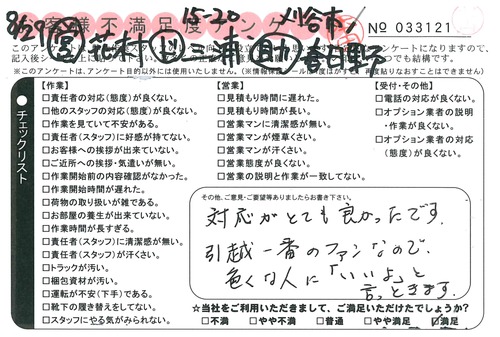 8/29 15-20 刈谷市
お客様不満足度アンケート
㊂花村 ㊐浦 ㊙春日野
No 033121
このアンケートは、
記入後シール
アンケートになりますので、
でも結構です。
(※このアンケートは、アンケート目的以外には使用いたしません。)
チェックリスト
【作業】
□責任者の対応(態度)が良くない。
□他のスタッフの対応(態度)が良くない。
□作業を見ていて不安がある。
□責任者(スタッフ)に好感が持てない。
□お客様への挨拶が出来ていない。
□ご近所への挨拶・気遣いが無い。
□作業開始前の内容確認がなかった。
□作業開始時間が遅れた。
□荷物の取り扱いが雑である。
□お部屋の養生が出来ていない。
□作業時間が長すぎる。
□責任者(スタッフ)に清潔感が無い。
□責任者(スタッフ)が汗くさい。
□トラックが汚い。
□梱包資材が汚い。
□運転が不安(下手)である。
□靴下の履き替えをしてない。
□スタッフにやる気がみられない。
【営業】
□見積もり時間に遅れた。
□見積もり時間が長い。
□営業マンに清潔感が無い。
□営業マンが煙草くさい。
□営業マンが汗くさい。
□営業態度が良くない。
□営業の説明と作業が一致してない。
【受付・その他】
□電話の対応が良くない。
□オプション業者の説明
・作業が良くない。
□オプション業者の対応
(態度)が良くない。
その他、ご意見・ご要望等ありましたらお書き下さい。
対応がとても良かったです。
引越一番のファンなので、
色々な人に「いいよ」と
言っときます。
☆当社をご利用いただきまして、ご満足いただけたでしょうか?
□不満 □やや不満 □普通 □やや満足 ☑満足